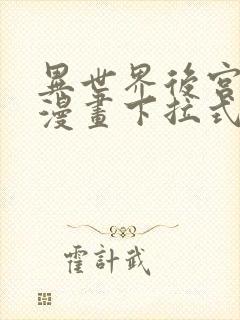 異世界後宮
漫畫下拉式
霍計武